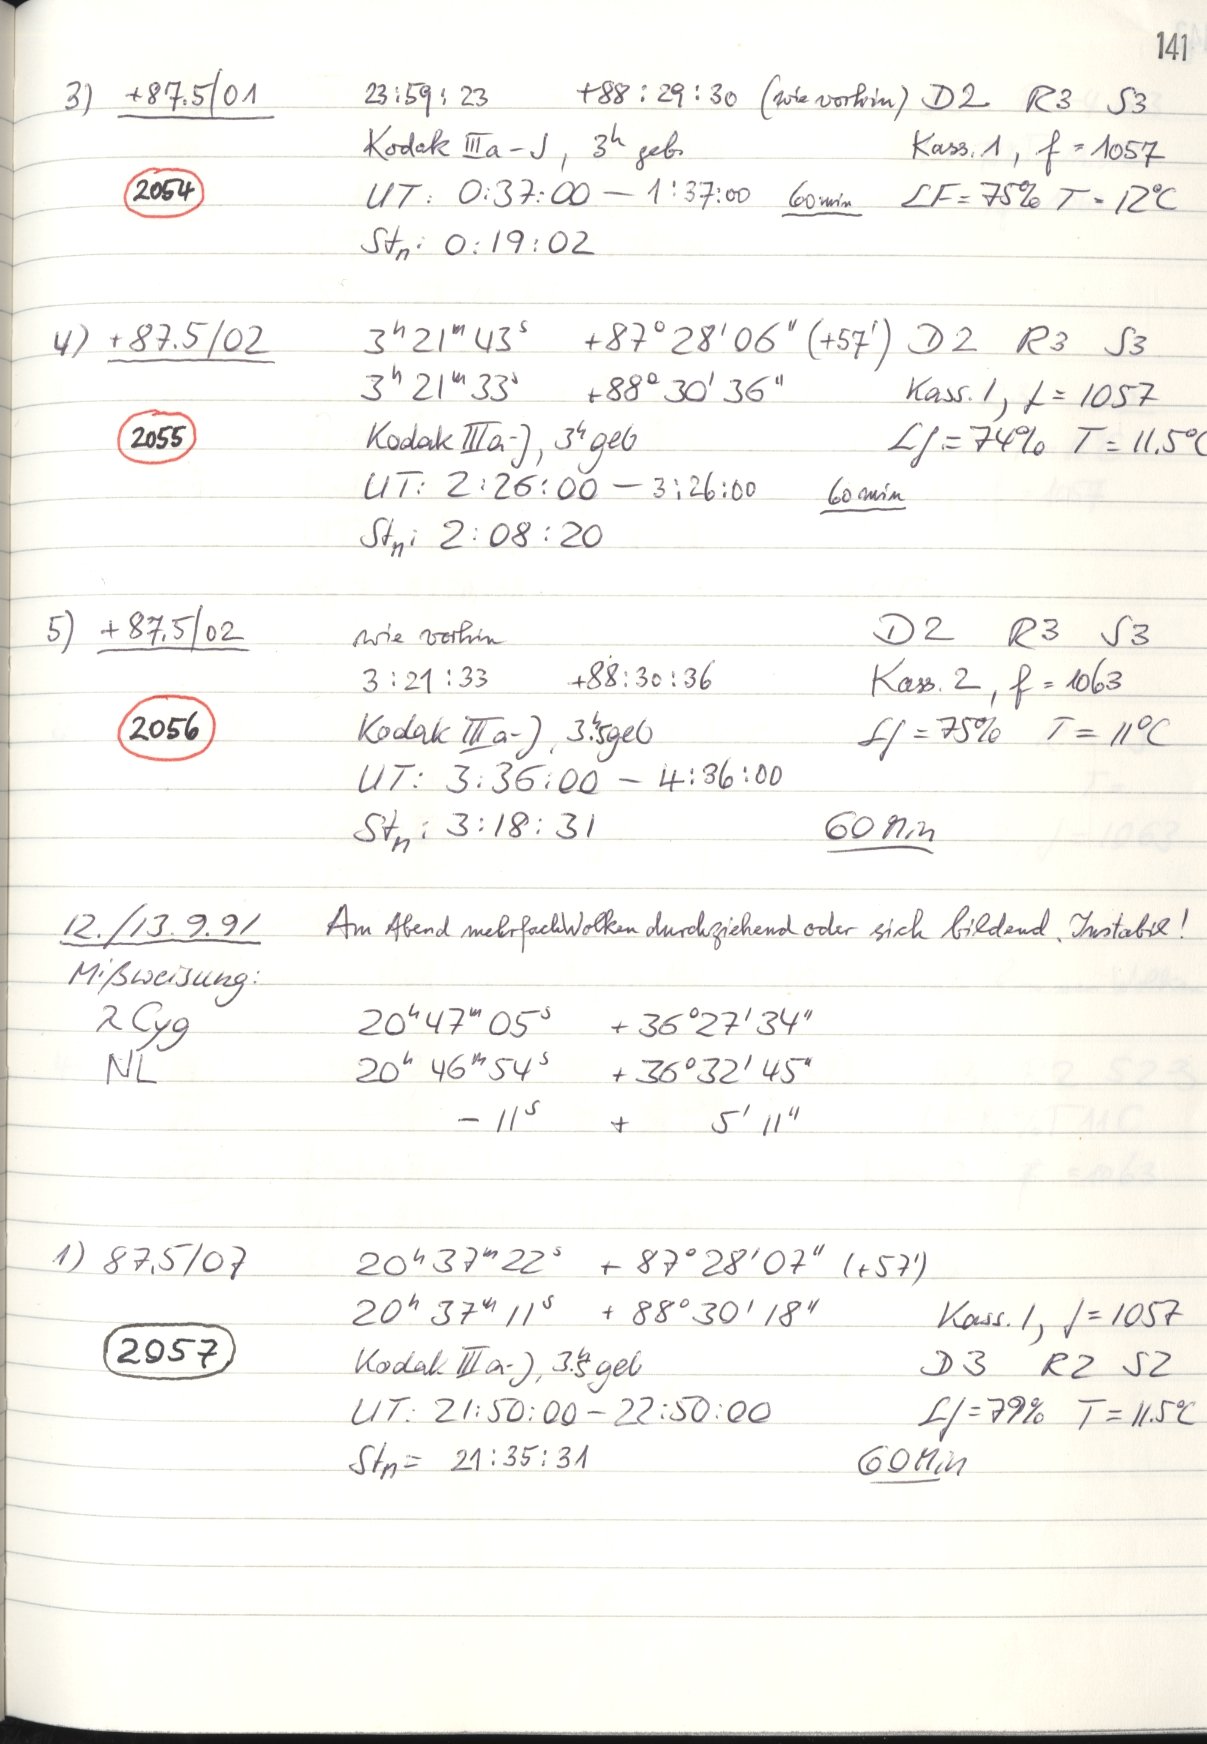 141
3) +87.5/01 23:59:23 +88:29:30 (wie vorhin) D2 R3 S3
Kodak IIIa-J, 3h geb. Kass. 1, f = 1057
2054 UT: 0:37:00 – 1:37:00 60min LF = 75% T = 12°C
Stn: 0:19:02
4) +87.5/02 3h 21m 43s +87° 28' 06" (+57') D2 R3 S3
3h 21m 33s +88° 30' 36" Kass. 1, f = 1057
2055 Kodak IIIa-J, 3h geb Lf = 74% T = 11.5°C
UT: 2:26:00 – 3:26:00 60min
Stn: 2:08:20
5) +87.5/02 wie vorhin D2 R3 S3
3:21:33 +88:30:36 Kass. 2, f = 1063
2056 Kodak IIIa-J, 3h.5 geb Lf = 75% T = 11°C
UT: 3:36:00 – 4:36:00
Stn: 3:18:31 60 Min
12./13.9.91 Am Abend mehrfach Wolken durchziehend oder sich bildend. Instabil!
Mißweisung:
λ Cyg 20h 47m 05s +36° 27' 34"
NL 20h 46m 54s +36° 32' 45"
– 11s + 5' 11"
1) 87.5/07 20h 37m 22s + 87° 28' 07" (+57')
20h 37m 11s + 88° 30' 18" Kass. 1, f = 1057
2057 Kodak IIIa-J, 3h.5 geb D3 R2 S2
UT: 21:50:00 – 22:50:00 Lf = 79% T = 11.5°C
Stn = 21:35:31 60 Min